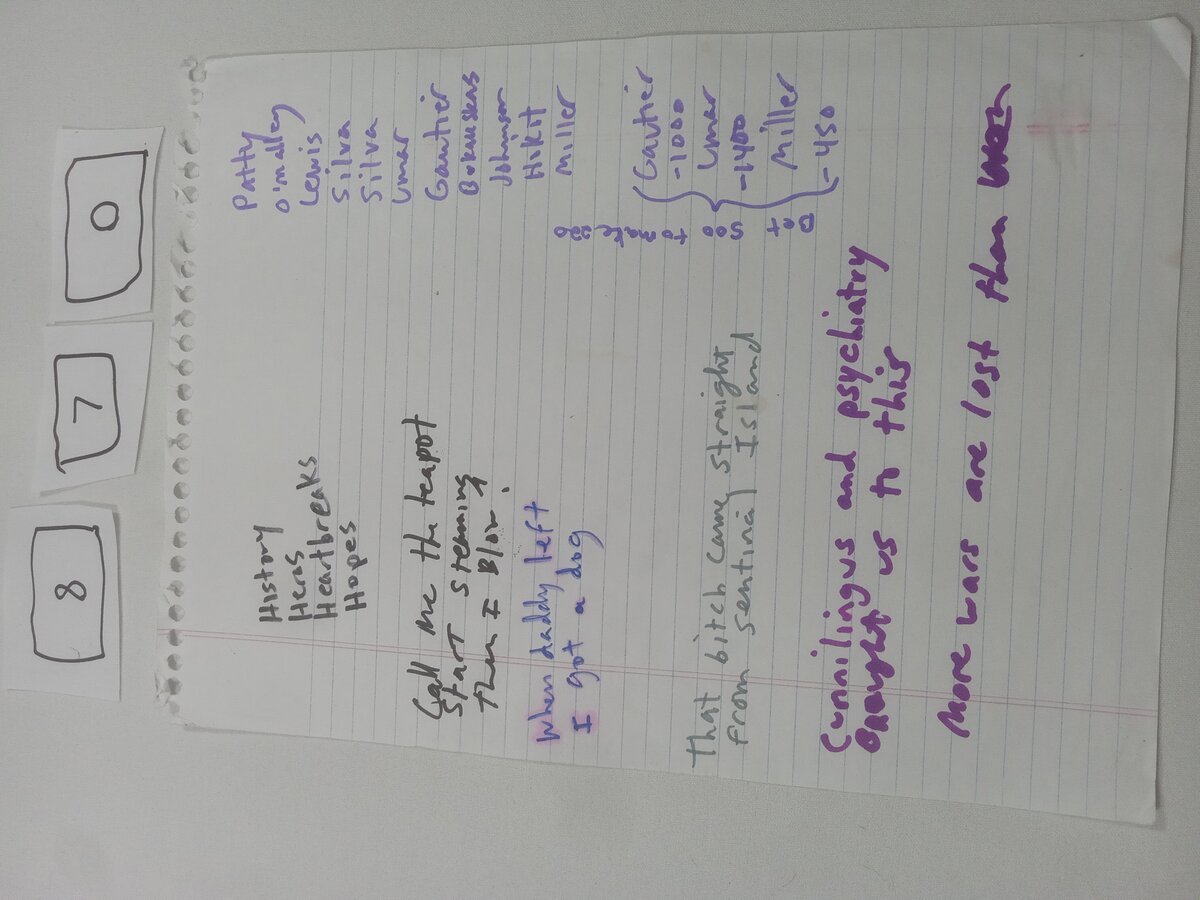 8 7 0
Patty
O'malley
Lewis
Silva
Silva
Umar
Gautier
Bokauskas
Johnson
Hikit
Miller
Gautier
-1000
Umar
-1400
Miller
-450
Bet 500 to make 220
History
Heros
Heartbreaks
Hopes
Call me the teapot
Start steaming
then I Blow!
When daddy left
I got a dog
that bitch came straight
from sentinal Island
Cunnilingus and psychiatry
Brought us to this
More wars are lost than won